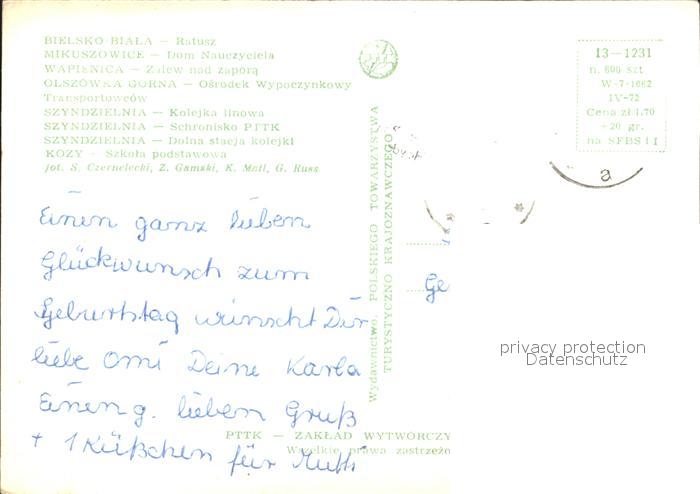 BIELSKO-BIAŁA — Ratusz
MIKUSZOWICE — Dom Nauczyciela
WAPIENICA — Zalew nad zaporą
OLSZÓWKA GÓRNA — Ośrodek Wypoczynkowy
Transportowców
SZYNDZIELNIA — Kolejka linowa
SZYNDZIELNIA — Schronisko PTTK
SZYNDZIELNIA — Dolna stacja kolejki
KOZY - Szkoła podstawowa
fot. S. Czernelecki, Z. Gamski, K. Matl, G. Russ
13—1231
n. 600 szt
W-7-1662
IV-72
Cena zł 1,70
+20 gr.
na SFBS i I
a
Wydawnictwo. POLSKIEGO TOWARZYSTWA
TURYSTYCZNO KRAJOZNAWCZEGO
Einen ganz lieben
Glückwunsch zum
Geburtstag wünscht Dir
liebe Omi Deine Karla
Einen g. lieben Gruß
+ 1 Küßchen für Mutti
Ge
privacy protection
Datenschutz
PTTK — ZAKŁAD WYTWÓRCZY
Wszelkie prawa zastrzeżo